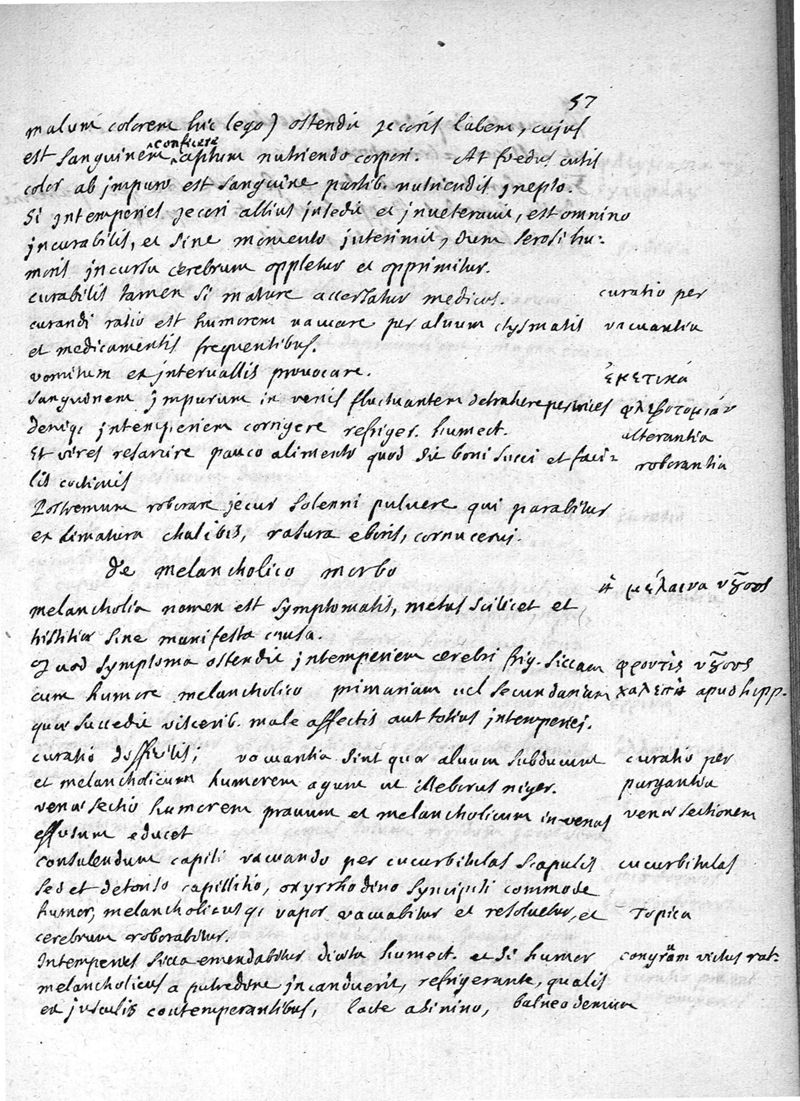 57
malum colorem huc lego) ostendit jecoris labem, cujus
conficere
est sanguinem aptum nutriendo corpori. At foedus cutis
color ab impuro est sanguine partib. nutriendis inepto.
Si intemperies jecori altius insedit et inveteravit, est omnino
incurabilis, et sine momento interimit, dum serosi hu-
moris incursu cerebrum oppletur et opprimitur.
curabilis tamen si mature accersatur medicus. curatio per
curandi ratio est humorem vacuare per alvum clysmatis vacuantia
et medicamentis frequentibus.
vomitum ex intervallis provocare. ἐμετικά
sanguinem impurum in venis fluctuantem detrahere per vices φλεβοτομίαν
deniq; intemperiem corrigere refriger. humect. alterantia
Et vires resarcire pauco alimento quod sit boni succi et faci- roborantia
lis coctionis
Postremum roborare jecur solenni pulvere qui parabitur
ex limatura chalibis, rasura eboris, cornu cervi.
de melancholico morbo
ἡ μέλαινα νȣ͂σος
melancholia nomen est symptomatis, metus scilicet et
tristitiæ sine manifesta causa.
Quod symptoma ostendit intemperiem cerebri frig. siccam φροντὶς νȣ͂σος
cum humore melancholico primariam vel secundariam χαλεπὴ apud hipp.
quæ succedit viscerib. male affectis aut totius intemperiei.
curatio difficilis; vacuantia sint quæ alvum subducunt curatio per
et melancholicum humorem agunt ut elleborus niger. purgantia
venæ sectio humorem pravum et melancholicum in venas venæ sectionem
effusum educet
consulendum capiti vacuando per cucurbitulas scapulis cucurbitulas
sed et detonso capillitio, oxyrrhodino syncipiti commode
humor, melancholicusq; vapor vacuabitur et resolvetur, et Topica
cerebrum roborabitur.
Intemperies sicca emendabitur diæta humect. et si humor victus rat.
melancholicus a putredine incanduerit, refrigerante, qualis
ex jusculis contemperantibus, lacte asinino, balneo demum